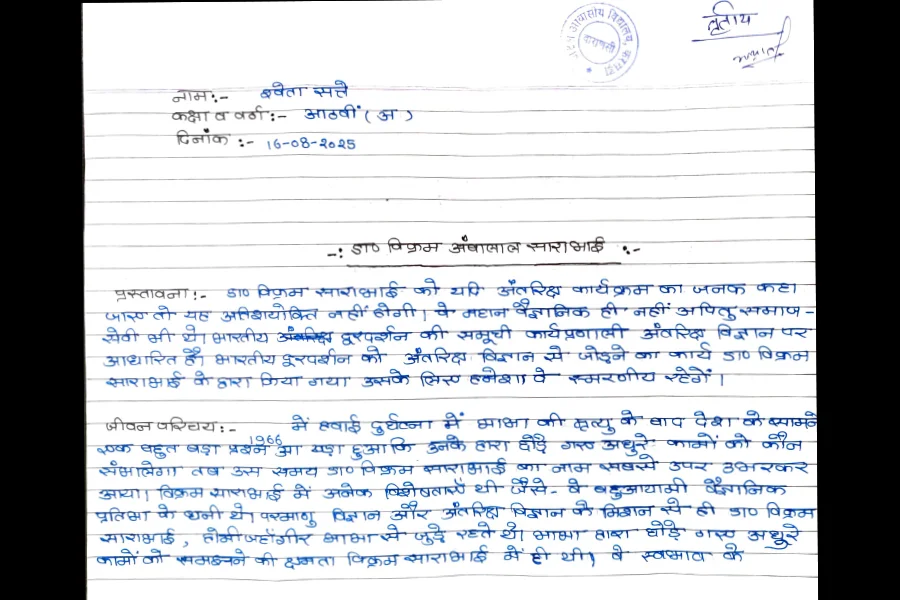 तृतीय
आवासीय विद्यालय,
वाराणसी
नाम:- श्वेता सत्ते
कक्षा व वर्ग:- आठवीं (अ)
दिनाँक:- 16-08-2025
-: डा० विक्रम अंबालाल साराभाई :-
प्रस्तावना:- डा० विक्रम साराभाई को यदि अंतरिक्ष कार्यक्रम का जनक कहा
जाए तो यह अतिशयोक्ति नहीं होगी। वे महान वैज्ञानिक ही नहीं अपितु समाज-
सेवी भी थे। भारतीय अंतरिक्ष दूरदर्शन की समूची कार्यप्रणाली अंतरिक्ष विज्ञान पर
आधारित है। भारतीय दूरदर्शन को अंतरिक्ष विज्ञान से जोड़ने का कार्य डा० विक्रम
साराभाई के द्वारा किया गया उसके लिए हमेशा वे स्मरणीय रहेगें।
जीवन परिचय:- में हवाई दुर्घटना में भाभा की मृत्यु के बाद देश के सामने
एक बहुत बड़ा प्रश्न 1966 आ खड़ा हुआ कि उनके द्वारा छोड़े गए अधुरे कामों को कौन
संभालेगा तब उस समय डा० विक्रम साराभाई का नाम सबसे उपर उभरकर
आया। विक्रम साराभाई में अनेक विशेषताएँ थी जैसे- वे बहुआयामी वैज्ञानिक
प्रतिभा के धनी थे। परमाणु विज्ञान और अंतरिक्ष विज्ञान के मिशन से ही डा० विक्रम
साराभाई, होमी जहाँगीर भाभा से जुड़े रहते थे। भाभा द्वारा छोड़े गए अधुरे
कामों को समझने की क्षमता विक्रम साराभाई में ही थी, वे स्वभाव के